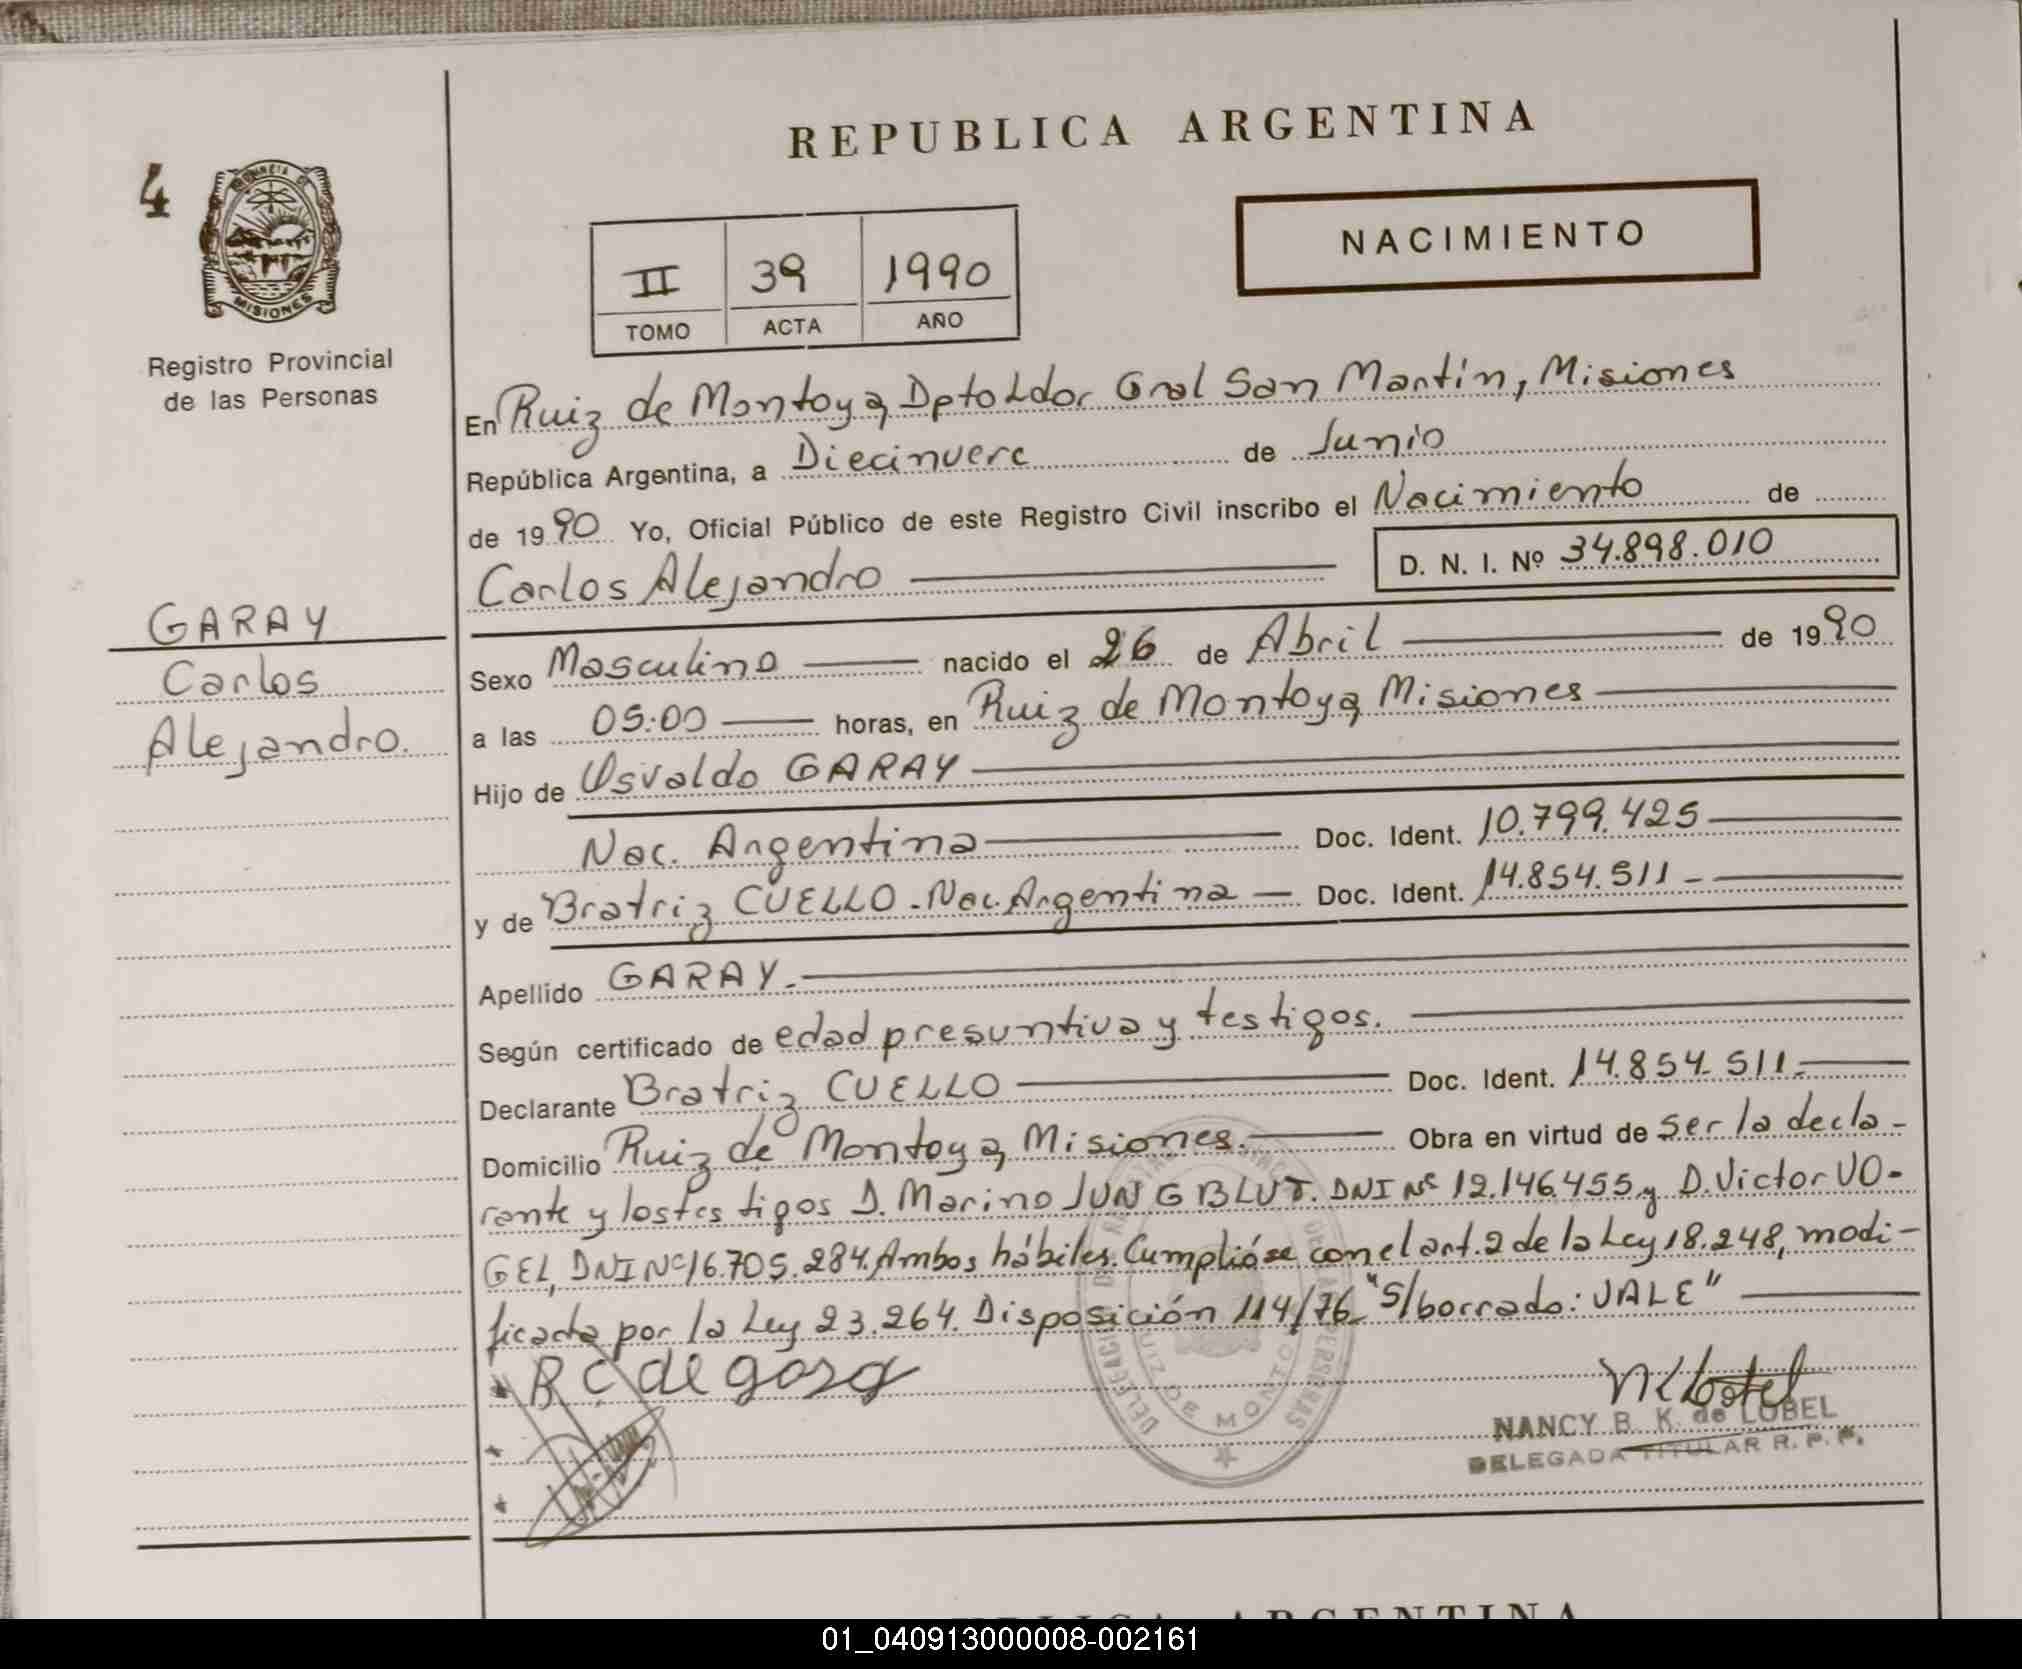 REPUBLICA ARGENTINA
4
PROVINCIA DE
MISIONES
NACIMIENTO
II 39 1990
TOMO ACTA AÑO
Registro Provincial
de las Personas
En Ruiz de Montoya, Dpto Ldor Gral San Martín, Misiones
República Argentina, a Diecinueve de Junio
de 1990 Yo, Oficial Público de este Registro Civil inscribo el Nacimiento de
Carlos Alejandro D. N. I. Nº 34.898.010
GARAY
Carlos
Alejandro.
Sexo Masculino nacido el 26 de Abril de 1990
a las 05:00 horas, en Ruiz de Montoya, Misiones
Hijo de Osvaldo GARAY
Nac. Argentina Doc. Ident. 10.799.425
y de Bratriz CUELLO - Nac. Argentina Doc. Ident. 14.854.511 -
Apellido GARAY.-
Según certificado de edad presuntiva y testigos.
Declarante Bratriz CUELLO Doc. Ident. 14.854.511.-
Domicilio Ruiz de Montoya, Misiones. Obra en virtud de ser la decla-
rante y los testigos D. Marino JUNGBLUT. DNI Nº 12.146.455 y D. Victor VO-
GEL, DNI Nº 16.705.284. Ambos hábiles. Cumplióse con el art. 2 de la Ley 18.248, modi-
ficada por la Ley 23.264. Disposición 114/76 "S/borrado: VALE"
B C de garay
NANCY B. K. de LOBEL
DELEGADA TITULAR R. P. P.
RUIZ DE MONTOYA
REPUBLICA ARGENTINA
01_040913000008-002161